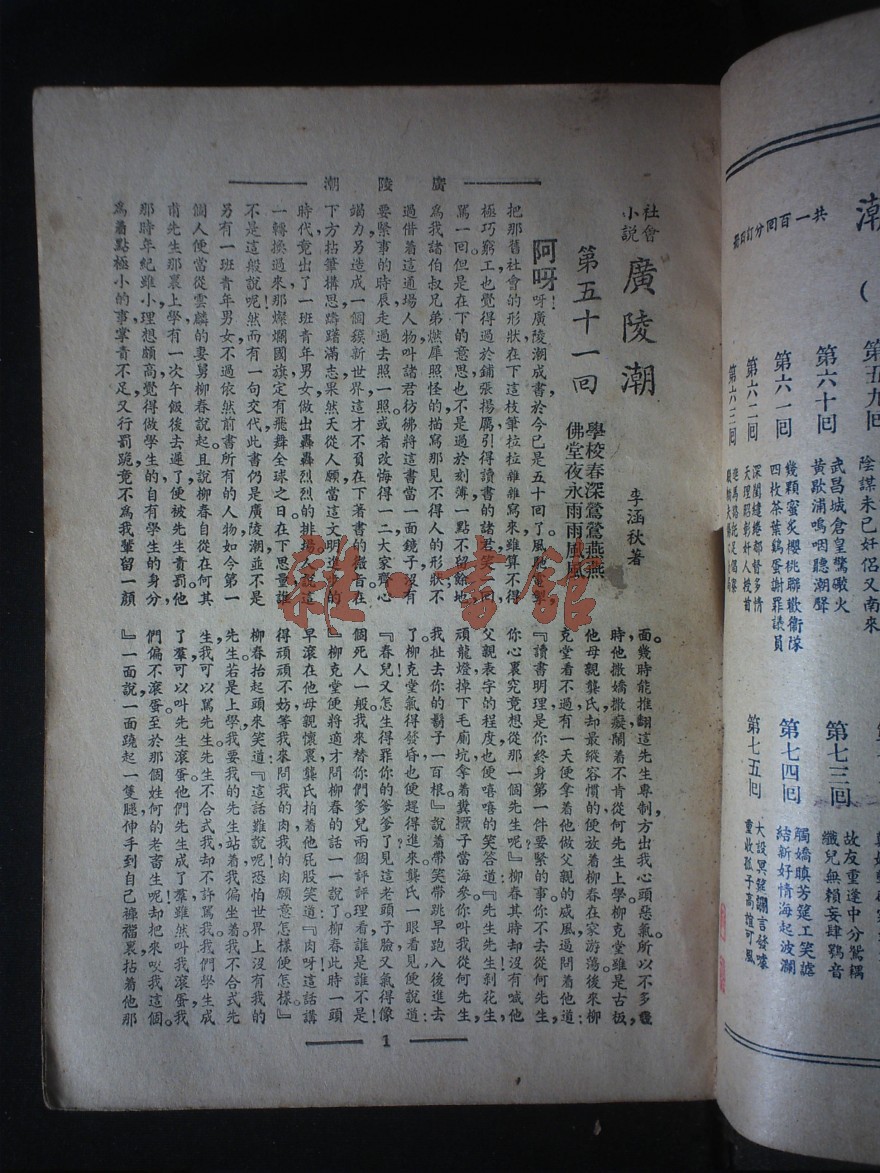 廣陵潮
社會
小說
廣陵潮
李涵秋著
第五十一回
學校春深鶯鶯燕燕
佛堂夜永雨雨風風
阿呀呀廣陵潮成書於今已是五十回了風馳電掣,
把那舊社會的形狀在下這枝筆拉拉雜雜寫來雖算不得
極巧窮工也覺得過於鋪張揚厲引得讀書的諸君笑一回
罵一回但是在下的意思也不是過於刻薄一點不留餘地
爲我諸伯叔兄弟燃犀照怪的描寫那見不得人的形狀不
過借着這通場人物叫諸君彷彿將這書當一面鏡子沒有
要緊事的時辰走過去照一照或者改悔得一二大家齊心
竭力另造成一個簇新世界這才不負在下著書的微旨在
下方拈筆構思躊躇滿志果然天從人願當這文明進步的
時代竟出了一班青年男女做出轟轟烈烈的排場。
一轉操過來那燦爛國旗定有飛舞全球之日在下思量誰
不是這般說呢然而有一句交代此書仍是廣陵潮並不是
另有一班青年男女不過依然前書所有的人物如今第一
個人便當從雲麟的妻舅柳春說起且說柳春自從在何其
甫先生那裏上學有一次午飯後去遲了便被先生責罰他
那時年紀雖小理想頗高覺得做學生的自有學生的身分,
爲着點極小的事掌責不足又行罰跪竟不爲我輩留一顏
面。幾時能推翻這先生專制方出我心頭惡氣所以不多幾
時他撒嬌撒癡鬧着不肯從何先生上學柳克堂雖是古板,
他母親龔氏却最縱容慣的便放着柳春在家游蕩後來柳
克堂看不過有一天便拿着他做父親的威風逼問着他道:
『讀書明理是你終身第一件要緊的事你不去從何先生,
你心裏究竟想從那一個先生呢』柳春其時却沒有喊他
父親表字的程度也便嘻嘻的笑答道『先生先生剃花生,
頑龍燈掉下毛廁坑拿着糞橛子當海參你叫我從何先生,
我扯去你的鬍子一百根』說着帶笑帶跳早跑入後進去
了柳克堂氣得發昏也便趕得進來龔氏一眼看見便說道:
『春兒又怎生得罪你的爹爹了見這老頭子臉又氣得像
個死人一般我來替你們爹兒兩個評評理看誰是誰不是!
』柳克堂便將適才問柳春的話一一說了柳春此時一頭
早滾在他母親懷裏龔氏拍着他屁股笑道『肉呀這話講
得頑頑不妨等我來問我的肉我的肉願意怎樣便怎樣』
柳春抬起頭來笑道『這話難說呢恐怕世界上沒有我的
先生若是上學我要我的先生站着我偏坐着我不合式先
生我可以罵先生先生不合式我却不許罵我我們學生成
了羣可以叫先生滾蛋他們先生成了羣雖然叫我滾蛋我
們偏不滾蛋至於那個姓何的老畜生呢却把來咬我這個。
』一面說一面蹺起一隻腿伸手到自己褲襠裏拈着他那
1
潮
共一百回分訂四册
第五九回
陰謀未已奸侶又南來
第六十回
武昌城倉皇驚礮火
黃歇浦嗚咽聽潮聲
第六一回
幾顆蜜炙櫻桃聯歡衛隊
四枚茶葉鷄蛋謝罪議員
第六二回
深閨繾綣都督多情
天理昭彰奸人授首
第六三回
第七三回
故友重逢中分鴛耦
孅兒無賴妄肆鷄音
第七四回
觸嬌嗔芳筵工笑謔
結新好情海起波瀾
第七五回
大設冥筵讕言發噱
重收孤子高誼可風
雜·書館